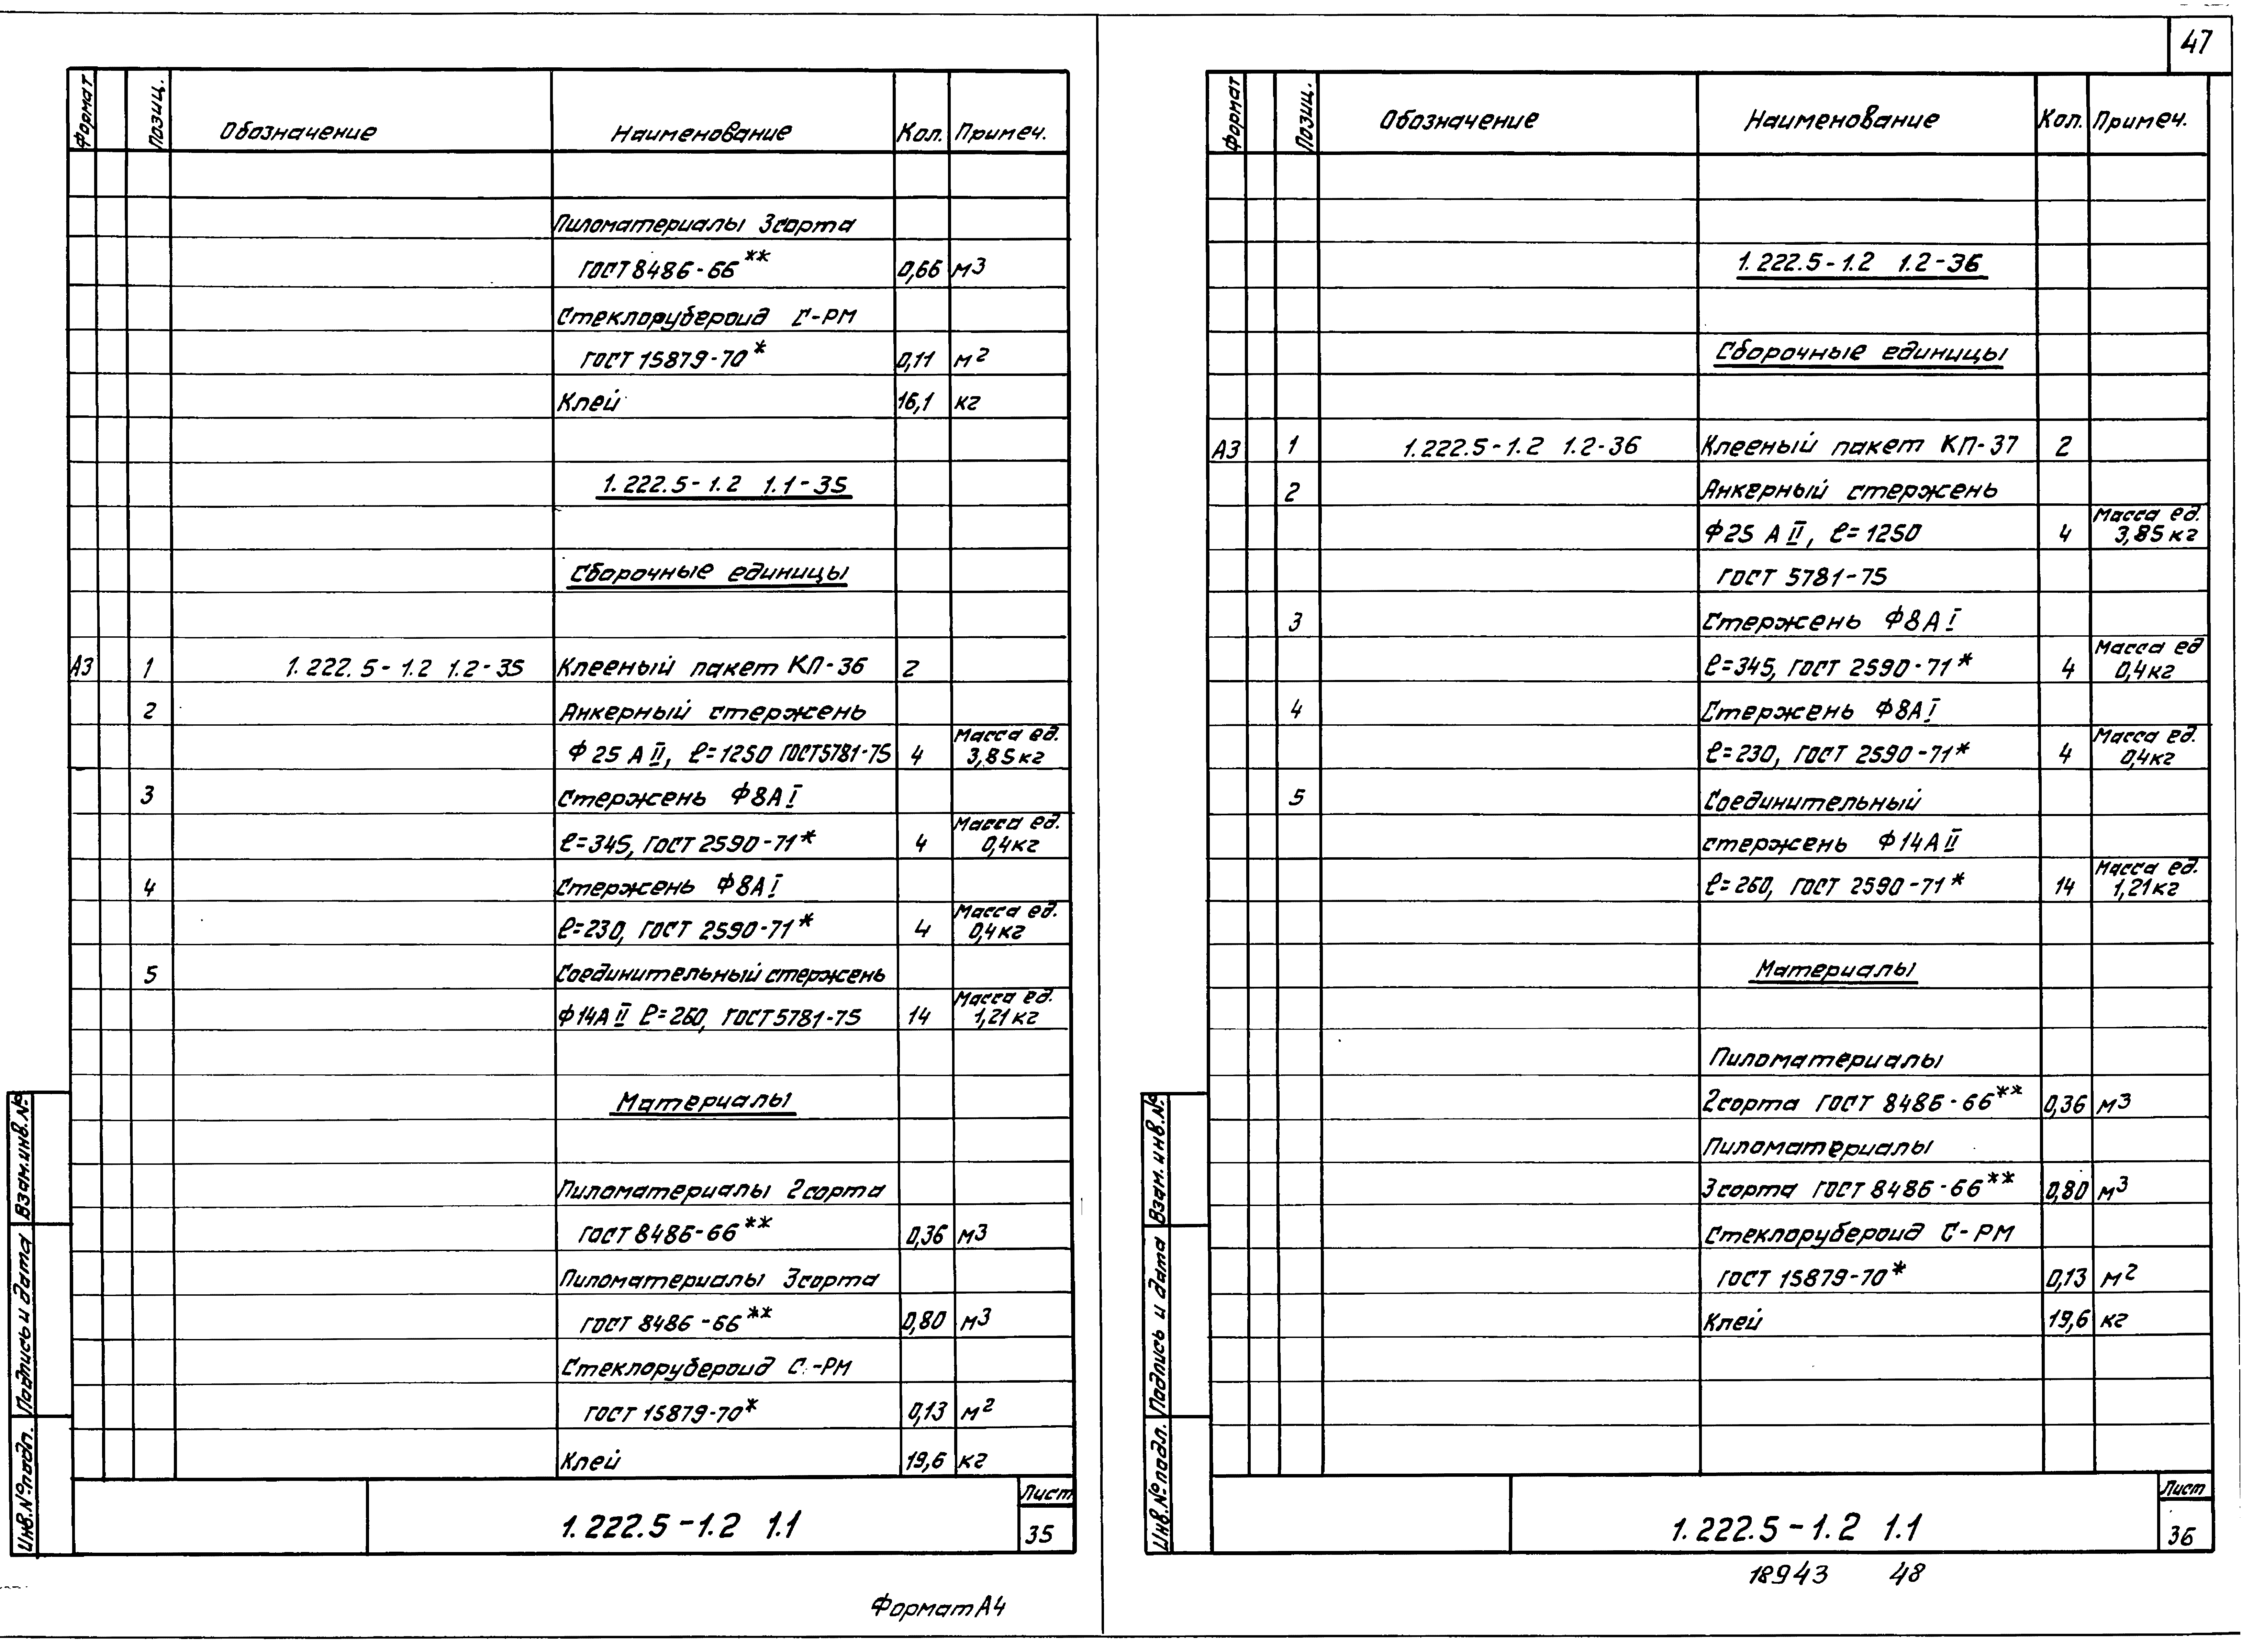 47
Формат Позиц. Обозначение Наименование Кол. Примеч.
Пиломатериалы 3 сорта
ГОСТ 8486-66** 0,66 м3
Стеклорубероид С-РМ
ГОСТ 15879-70* 0,11 м2
Клей 16,1 кг
1.222.5-1.2 1.1-35
Сборочные единицы
А3 1 1.222.5-1.2 1.2-35 Клееный пакет КП-36 2
2 Анкерный стержень
Ф 25 А II, ℓ=1250 ГОСТ 5781-75 4 Масса ед. 3,85 кг
3 Стержень Ф8А I
ℓ=345, ГОСТ 2590-71* 4 Масса ед. 0,4 кг
4 Стержень Ф8А I
ℓ=230, ГОСТ 2590-71* 4 Масса ед. 0,4 кг
5 Соединительный стержень
Ф14А II ℓ=260, ГОСТ 5781-75 14 Масса ед. 1,21 кг
Материалы
Пиломатериалы 2 сорта
ГОСТ 8486-66** 0,36 м3
Пиломатериалы 3 сорта
ГОСТ 8486-66** 0,80 м3
Стеклорубероид С-РМ
ГОСТ 15879-70* 0,13 м2
Клей 19,6 кг
Взам. инв. №
Подпись и дата
Инв. № подл.
1.222.5-1.2 1.1
Лист
35
Формат А4
Формат Позиц. Обозначение Наименование Кол. Примеч.
1.222.5-1.2 1.2-36
Сборочные единицы
А3 1 1.222.5-1.2 1.2-36 Клееный пакет КП-37 2
2 Анкерный стержень
Ф 25 А II, ℓ=1250 4 Масса ед. 3,85 кг
ГОСТ 5781-75
3 Стержень Ф8А I
ℓ=345, ГОСТ 2590-71* 4 Масса ед 0,4 кг
4 Стержень Ф8А I
ℓ=230, ГОСТ 2590-71* 4 Масса ед. 0,4 кг
5 Соединительный
стержень Ф14А II
ℓ=260, ГОСТ 2590-71* 14 Масса ед. 1,21 кг
Материалы
Пиломатериалы
2 сорта ГОСТ 8486-66** 0,36 м3
Пиломатериалы
3 сорта ГОСТ 8486-66** 0,80 м3
Стеклорубероид С-РМ
ГОСТ 15879-70* 0,13 м2
Клей 19,6 кг
Взам. инв. №
Подпись и дата
Инв. № подл.
1.222.5-1.2 1.1
Лист
36
18943 48